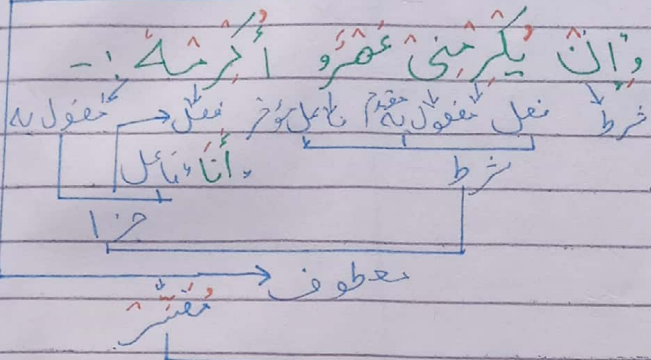 وَإِنْ يُكْرِمْنِي عَمْرٌو أُكْرِمْهُ :-
شرط فعل مفعول به مقدم فاعل مؤخر فعل مفعول به
شرط أَنَا فاعل
جزا
معطوف
مُفَسَّر